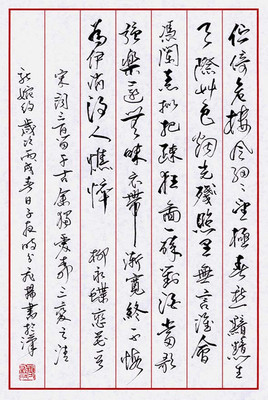 佇倚危樓風細細望極春愁黯黯生
天際草色烟光殘照里無言誰會
憑闌意拟把疎狂圖一醉對酒當歌
強樂還無味衣帶漸寬終不悔
為伊消得人憔悴 柳永蝶戀花
宋詞三百首千古獨愛柳三變之清
新婉約歲次丙戌春日子夜時分書於津